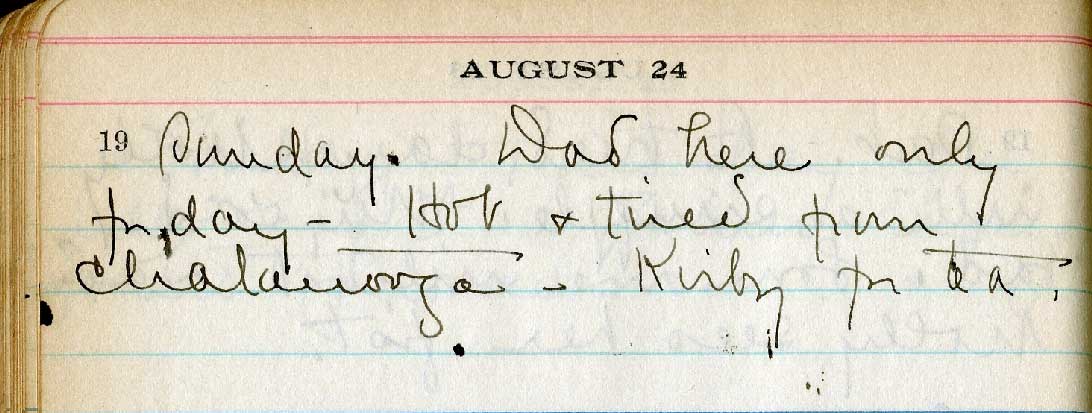 AUGUST 24
19 Sunday. Dad here only
for day – Hot & tired from
Chatanooga – Kirby for tea.